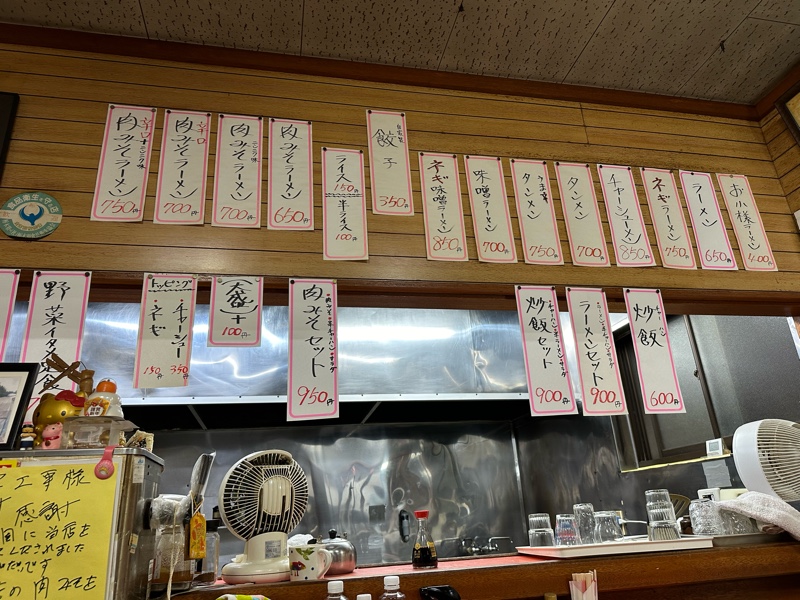 お子様ラーメン 400円
ラーメン 650円
ネギラーメン 750円
チャーシューメン 850円
タンメン 700円
うま辛
タンメン 750円
味噌ラーメン 700円
ネギ味噌ラーメン 850円
自家製
餃子 350円
ライス 150円
半ライス 100円
肉みそラーメン 650円
肉みそラーメン
ニンニク味
700円
辛口
肉みそラーメン 700円
辛口+ニンニク味
肉みそラーメン 750円
チャーハン
炒飯 600円
ラーメンセット
900円
炒飯セット
900円
肉みそセット
950円
大盛り+
100円
トッピング
・チャーシュー 350円
・ネギ 150円
野菜イタメ定食
工事様
感謝
に当店を
の肉みそを